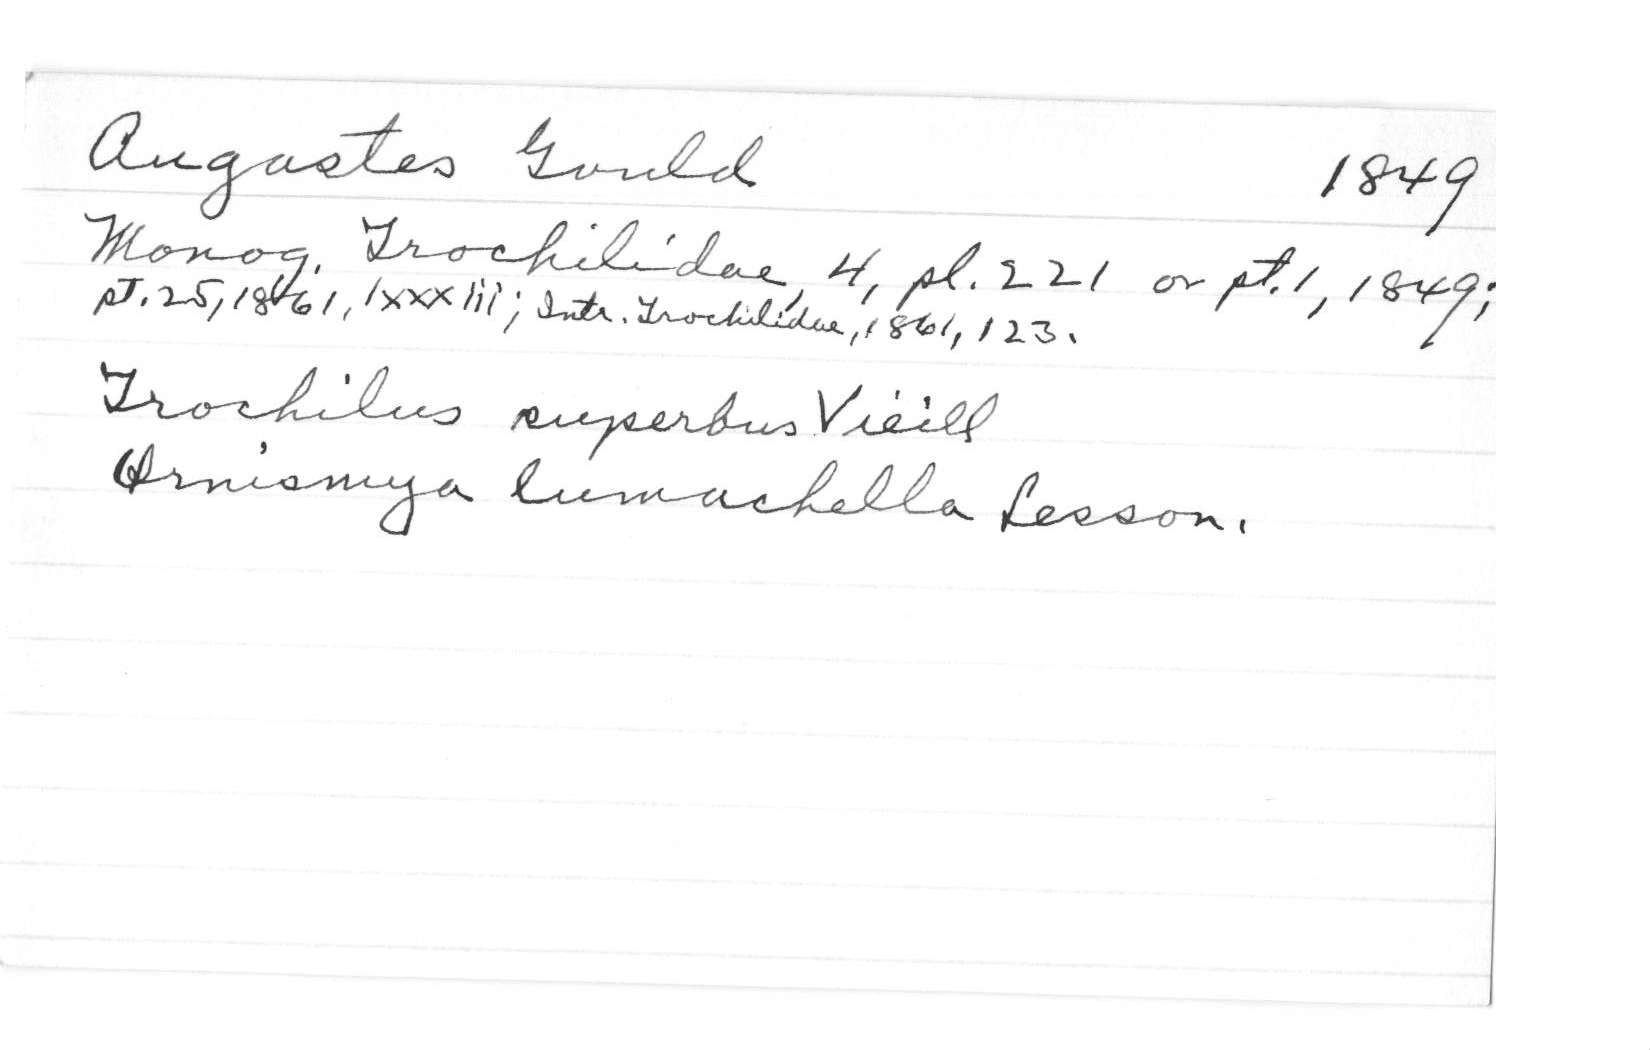 Augastes Gould 1849
Monog. Trochilidae, 4, pl. 221 or pt. 1, 1849;
pt. 25, 1861, lxxxiii; Intr. Trochilidae, 1861, 123.
Trochilus superbus Vieill
Ornismya lumachella Lesson.